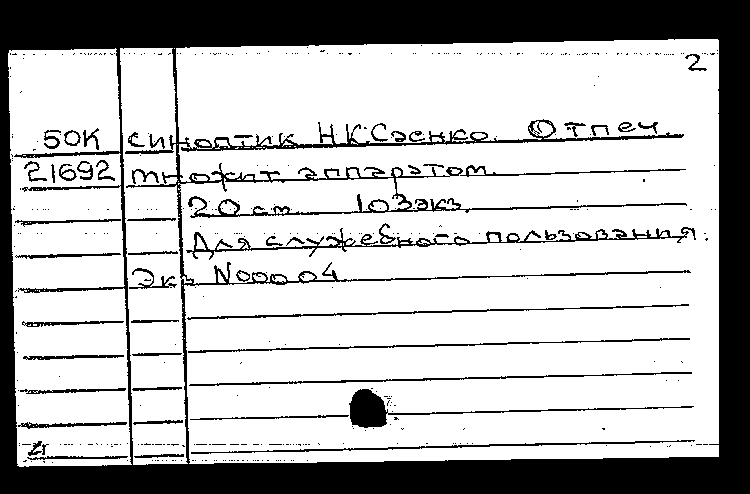 2
50К синоптик Н.К.Саенко. Отпеч.
21692 множит. аппаратом.
20 ст. 103 экз.
Для служебного пользования.
Экз N00004